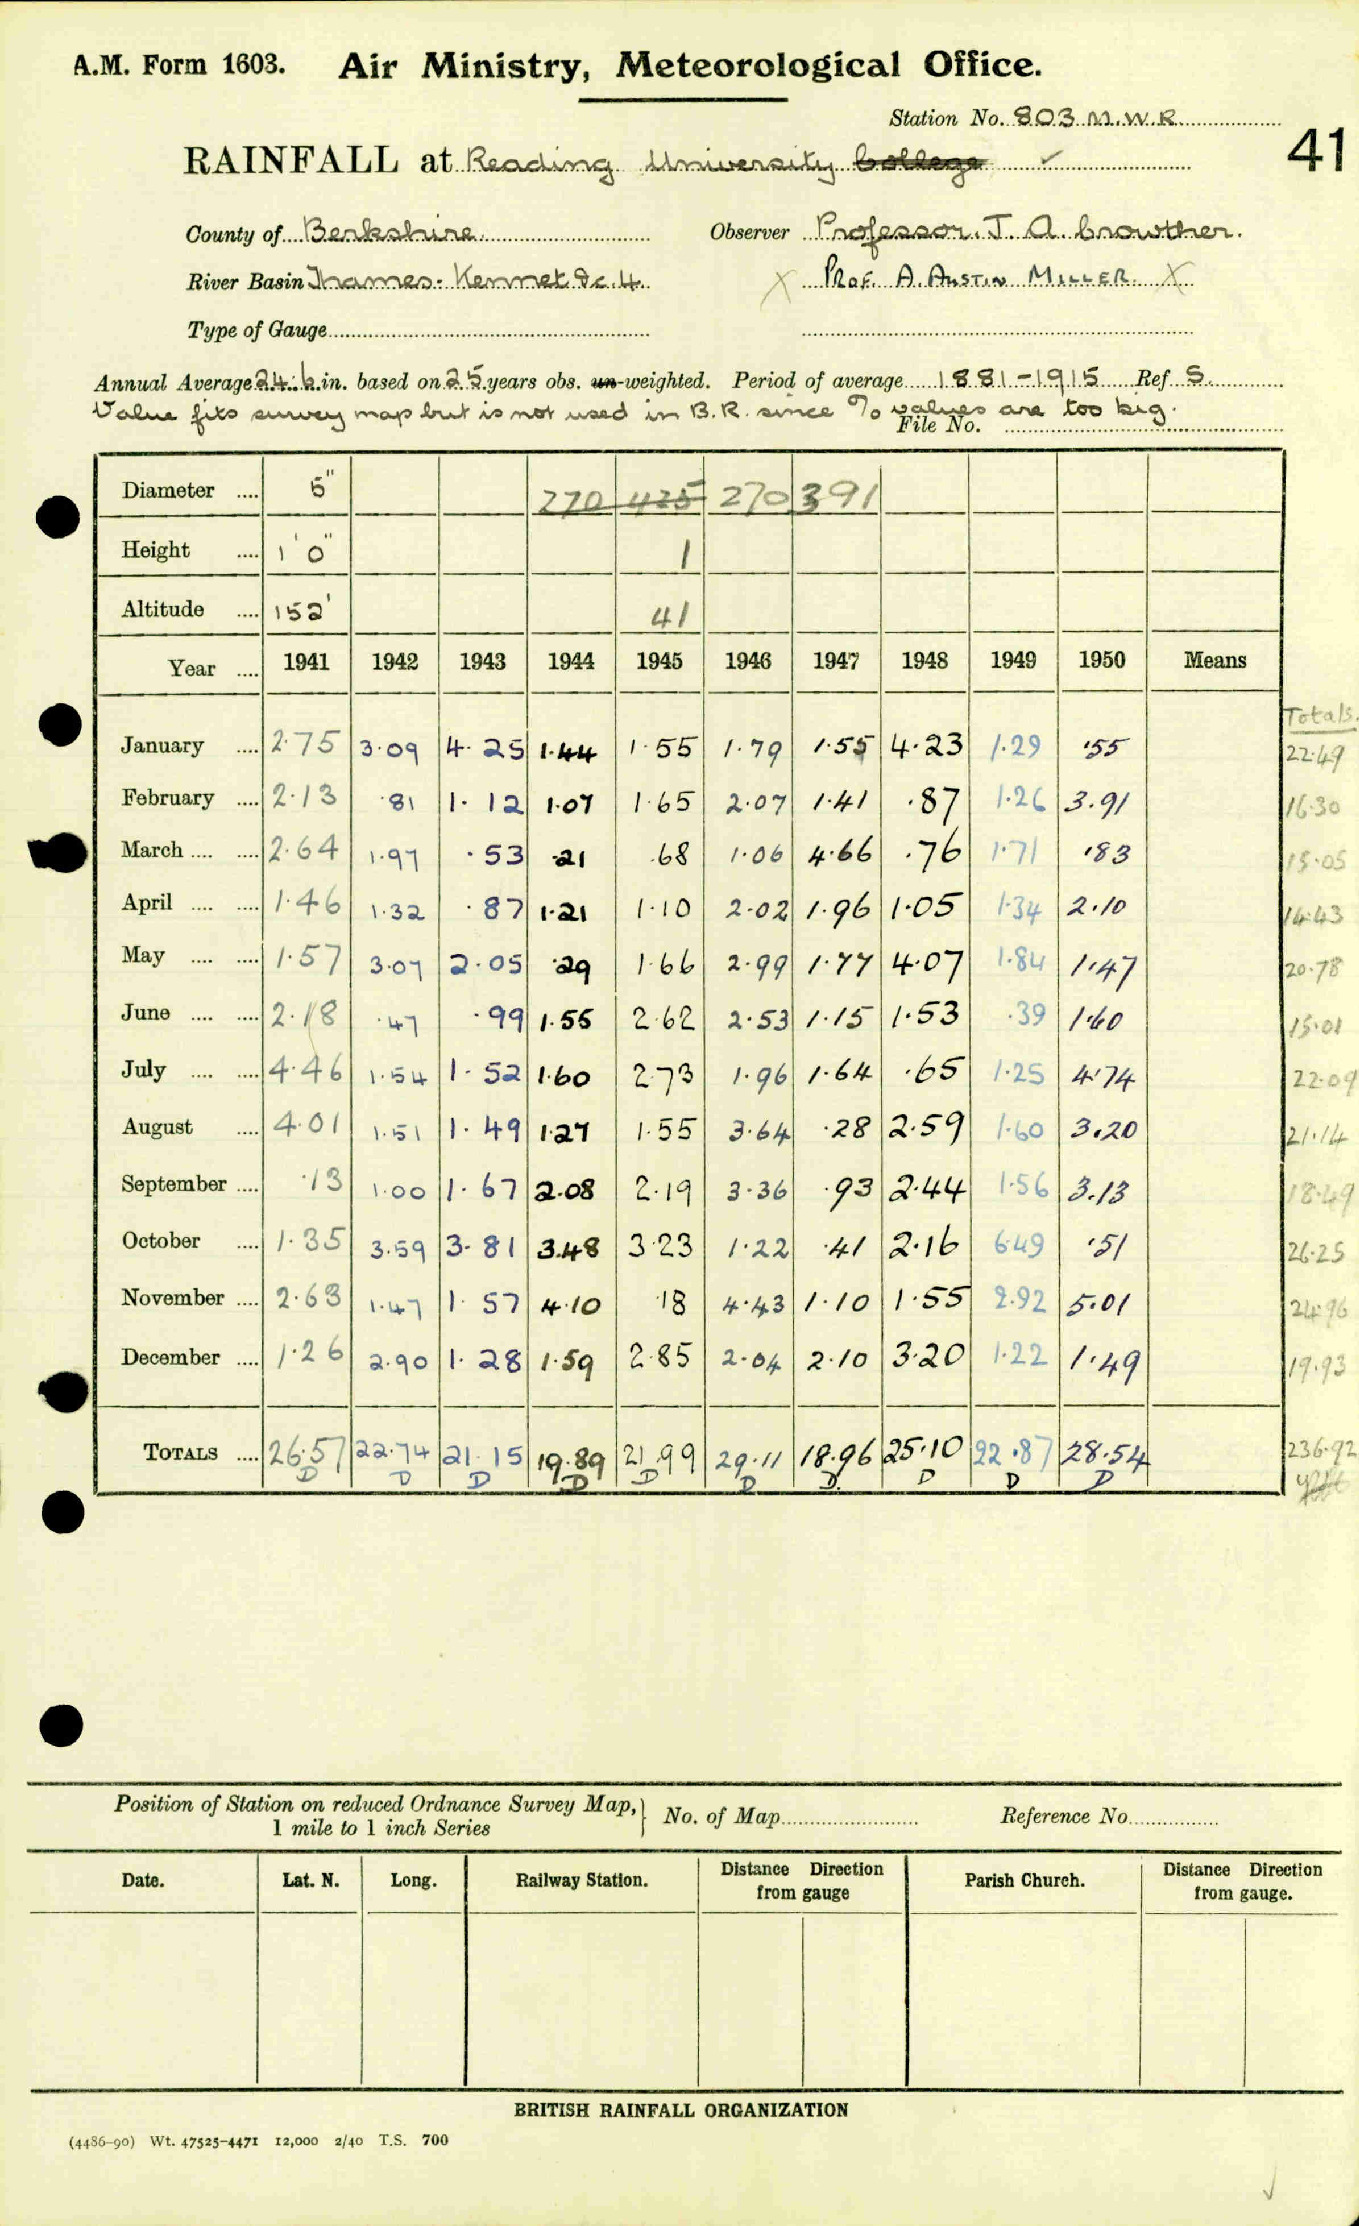 A.M. Form 1603. Air Ministry, Meteorological Office.
Station No. 803 M.W.R.
41
RAINFALL at Reading University College ✓
County of Berkshire Observer Professor J. A Crowther.
River Basin Thames - Kennet &c. 4. X PROF. A. AUSTIN MILLER X
Type of Gauge
Annual Average 24.6 in. based on 25 years obs. un-weighted. Period of average 1881-1915 Ref S.
Value fits survey map but is not used in B.R. since % values are too big.
File No.
Diameter .... 5" 270 425 270 391
Height .... 1' 0" 1
Altitude .... 152' 41
Year .... 1941 1942 1943 1944 1945 1946 1947 1948 1949 1950 Means
Totals.
January .... 2.75 3.09 4.25 1.44 1.55 1.79 1.55 4.23 1.29 .55 22.49
February .... 2.13 .81 1.12 1.07 1.65 2.07 1.41 .87 1.26 3.91 16.30
March .... .... 2.64 1.97 .53 .21 .68 1.06 4.66 .76 1.71 .83 15.05
April .... .... 1.46 1.32 .87 1.21 1.10 2.02 1.96 1.05 1.34 2.10 14.43
May .... .... 1.57 3.07 2.05 .29 1.66 2.99 1.77 4.07 1.84 1.47 20.78
June .... .... 2.18 .47 .99 1.55 2.62 2.53 1.15 1.53 .39 1.60 15.01
July .... .... 4.46 1.54 1.52 1.60 2.73 1.96 1.64 .65 1.25 4.74 22.09
August .... 4.01 1.51 1.49 1.27 1.55 3.64 .28 2.59 1.60 3.20 21.14
September .... .13 1.00 1.67 2.08 2.19 3.36 .93 2.44 1.56 3.13 18.49
October .... 1.35 3.59 3.81 3.48 3.23 1.22 .41 2.16 6.49 .51 26.25
November .... 2.63 1.47 1.57 4.10 .18 4.43 1.10 1.55 2.92 5.01 24.96
December .... 1.26 2.90 1.28 1.59 2.85 2.04 2.10 3.20 1.22 1.49 19.93
TOTALS .... 26.57 22.74 21.15 19.89 21.99 29.11 18.96 25.10 22.87 28.54 236.92
D D D D D D D. D D D
Position of Station on reduced Ordnance Survey Map, } No. of Map Reference No.
1 mile to 1 inch Series
Date. Lat. N. Long. Railway Station. Distance Direction from gauge Parish Church. Distance Direction from gauge.
BRITISH RAINFALL ORGANIZATION
(4486-90) Wt. 47525-4471 12,000 2/40 T.S. 700
✓